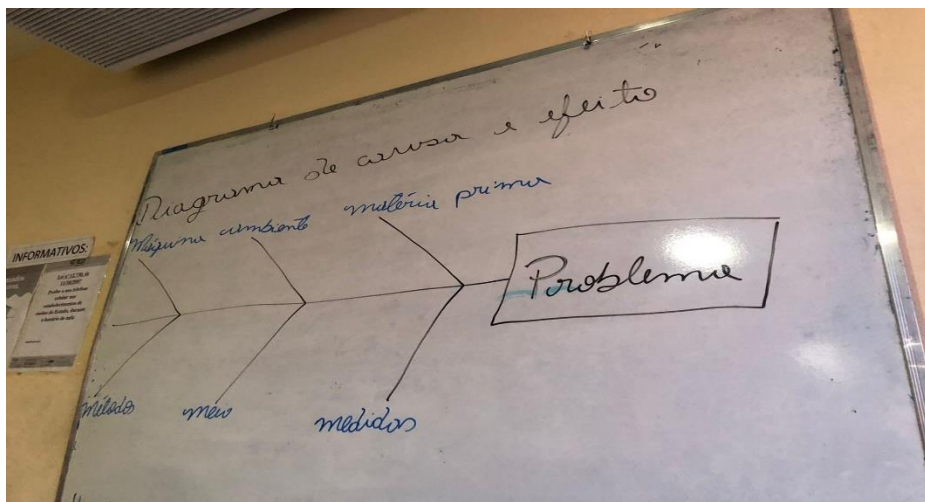 Diagrama de causa e efeito
Máquina ambiente matéria prima
Problema
método meio medidas
INFORMATIVOS: